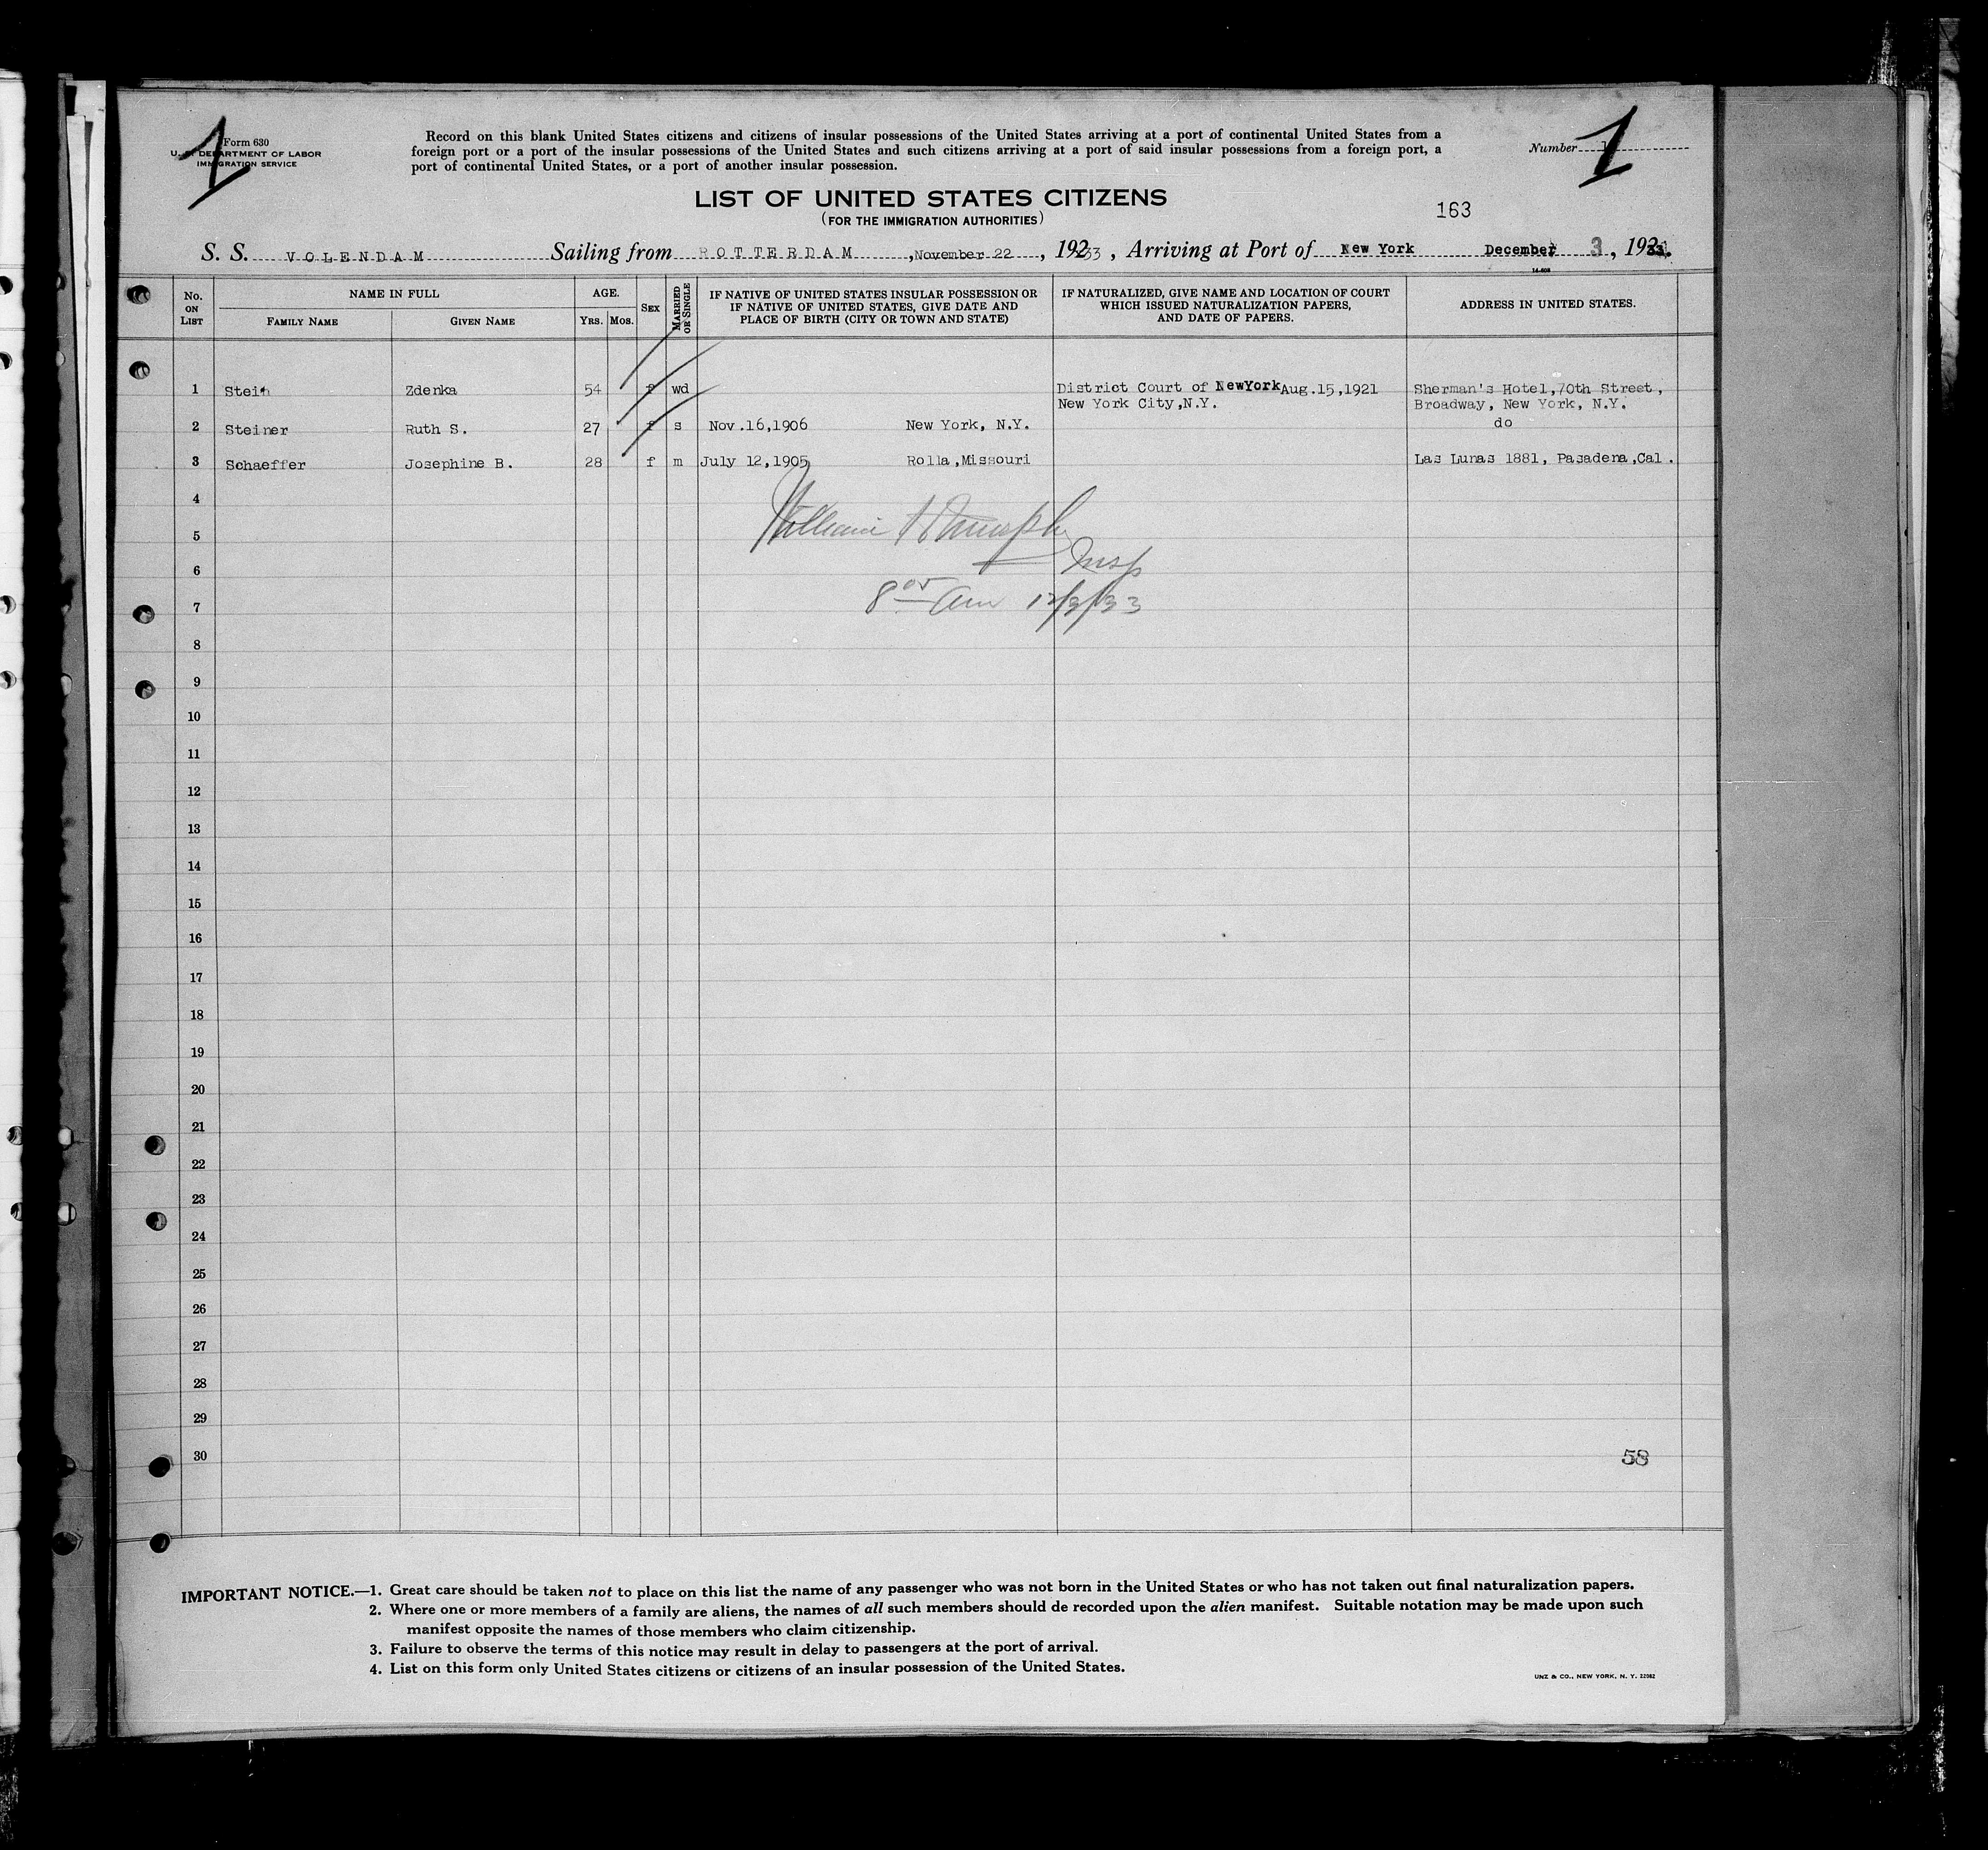 Form 630
U. S. DEPARTMENT OF LABOR
IMMIGRATION SERVICE
1
Record on this blank United States citizens and citizens of insular possessions of the United States arriving at a port of continental United States from a
foreign port or a port of the insular possessions of the United States and such citizens arriving at a port of said insular possessions from a foreign port, a
port of continental United States, or a port of another insular possession.
Number 1
1
LIST OF UNITED STATES CITIZENS
(FOR THE IMMIGRATION AUTHORITIES)
163
S. S. VOLENDAM Sailing from ROTTERDAM, November 22, 19233, Arriving at Port of New York December 3, 19233.
14-608
No. ON LIST
NAME IN FULL
FAMILY NAME GIVEN NAME
AGE.
YRS. MOS.
SEX
MARRIED OR SINGLE
IF NATIVE OF UNITED STATES INSULAR POSSESSION OR
IF NATIVE OF UNITED STATES, GIVE DATE AND
PLACE OF BIRTH (CITY OR TOWN AND STATE)
IF NATURALIZED, GIVE NAME AND LOCATION OF COURT
WHICH ISSUED NATURALIZATION PAPERS,
AND DATE OF PAPERS.
ADDRESS IN UNITED STATES.
1 Stein Zdenka 54 f wd District Court of NewYork Aug.15,1921 Sherman's Hotel,70th Street,
New York City,N.Y. Broadway, New York, N.Y.
2 Steiner Ruth S. 27 f s Nov.16,1906 New York, N.Y. do
3 Schaeffer Josephine B. 28 f m July 12,1905 Rolla,Missouri Las Lunas 1881, Pasadena,Cal.
4
5 William H Murphy
6 Insp
7 8 05 am 12/3/33
8
9
10
11
12
13
14
15
16
17
18
19
20
21
22
23
24
25
26
27
28
29
30
58
IMPORTANT NOTICE.—1. Great care should be taken not to place on this list the name of any passenger who was not born in the United States or who has not taken out final naturalization papers.
2. Where one or more members of a family are aliens, the names of all such members should de recorded upon the alien manifest. Suitable notation may be made upon such
manifest opposite the names of those members who claim citizenship.
3. Failure to observe the terms of this notice may result in delay to passengers at the port of arrival.
4. List on this form only United States citizens or citizens of an insular possession of the United States.
UNZ & CO., NEW YORK, N. Y. 22082